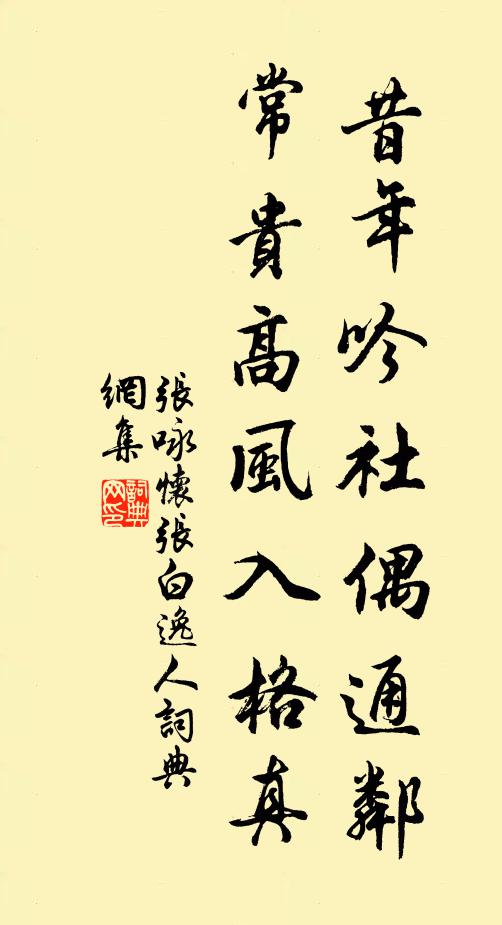 昔年吟社偶通鄰
常貴高風入格真
張咏懷張白逸人詞典
網集
詞典
网印